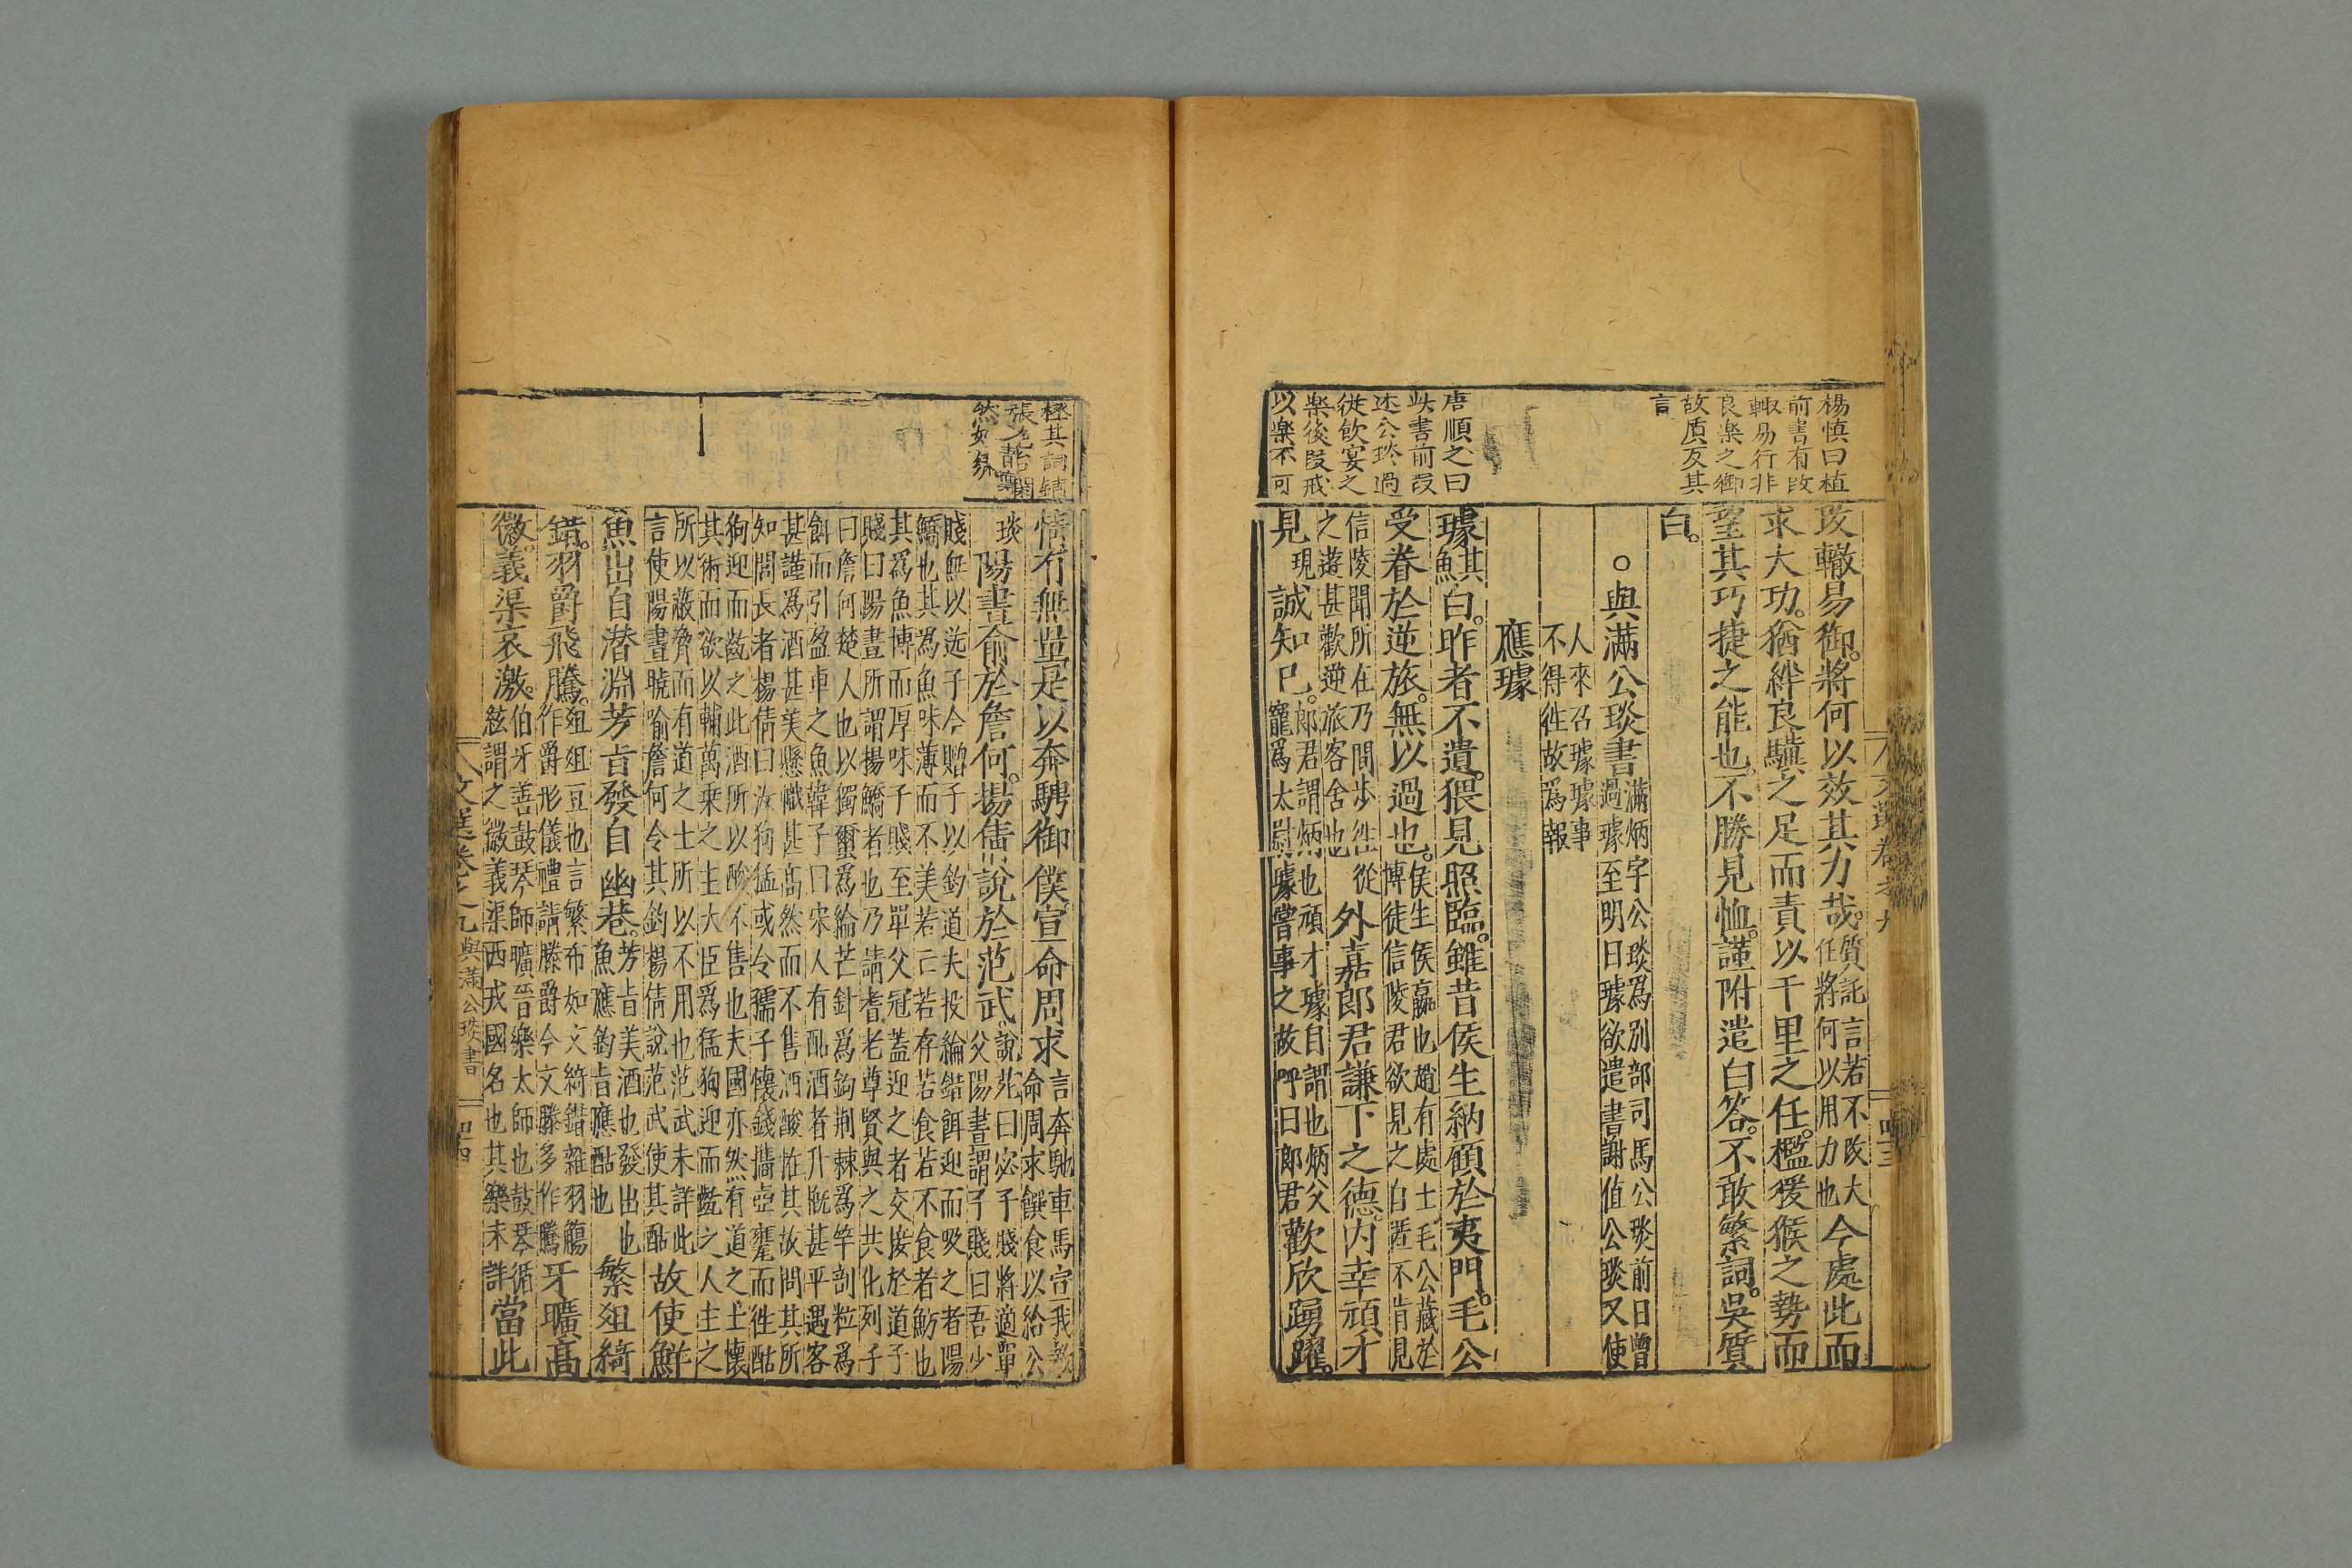 楊慎曰植
前書有改
輙易行非
良樂之御
故質反其
言
唐順之曰
此書前段
述公琰過
從飲宴之
樂後段戒
以樂不可
改轍易御。將何以效其力哉。質託言若不改大任將何以用力也今處此而
求大功。猶絆良驥之足而責以千里之任。檻猨猴之勢而
望其巧捷之能也。不勝見恤。謹附遣白答。不敢繁詞。吳質
白。
○與滿公琰書滿炳字公琰爲別部司馬公琰前日曾過璩至明日璩欲遣書謝值公琰又使
人來召璩璩事不得徃故爲報
應璩
璩其魚白。昨者不遺。猥見照臨。雖昔侯生納顧於夷門。毛公
受眷於逆旅。無以過也。侯生侯嬴也趙有處士毛公藏於博徒信陵君欲見之白匿不肯見
信陵聞所在乃間步徃從之遊甚歡逆旅客舍也外嘉郎君謙下之德。内幸頑才
見現誠知已。郎君謂炳也頑才璩自謂也炳父寵爲太尉璩嘗事之故呼曰郎君歡欣踴躍。
文選卷之九
四三
極其詞鋪
然如
情有無量。是以奔騁御僕宣命周求言奔馳車馬宣我教命周求饌食以給公
琰陽書俞於詹何。揚倩說於范武。說苑曰宓子賤將適單父陽晝謂子賤曰吾少
賤無以送子今贈子以釣道夫投綸錯餌迎而吸之者陽
鱎也其爲魚味薄而不美若亡若存若食若不食者魴也
其爲魚博而厚味子賤至單父冠蓋迎之者交接於道子
賤曰陽晝所謂揚鱎者也乃請耆老尊賢與之共化列子
曰詹何楚人也以獨蠒爲綸芒針爲鉤荆棘爲竿剖粒爲
餌而引盈車之魚韓子曰宋人有酤酒者升槪甚平遇客
甚謹爲酒甚美懸幟甚高然而不售酒酸怪其故問其所
知閭長者楊倩曰汝狗猛或令孺子懷錢擕壺罋而徃酤
狗迎而齕之此酒所以酸不售也夫國亦然有道之士懷
其術而欲以輔萬乗之主大臣爲猛狗迎而齕之人主之
所以蔽脅而有道之士所以不用也范武未詳此
言使陽晝曉喻詹何令其釣楊倩說范武使其酤故使鮮
魚出自潜淵芳旨發自幽巷。芳旨美酒也發出也魚應釣旨應酤也繁俎綺
錯。羽爵飛騰。俎俎豆也言繁布如文綺錯雜羽觴作爵形儀禮請媵爵今文媵多作騰牙曠高
徽。義渠哀激。伯牙善鼓琴師曠晉樂太師也鼓琴循絃謂之徽義渠西戎國名也其樂未詳當此
文選卷之九
與滿公琰書
四四